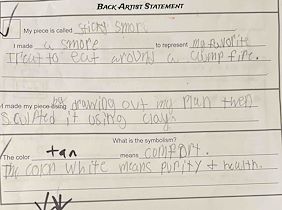 BACK-ARTIST STATEMENT
My piece is called sticky smore
I made a smore to represent my favorite
Treat to eat around a camp fire.
I made my piece using by drawing out my plan then
sculpted it using clay.
What is the symbolism?
The color tan means comfort.
The color white means purity + health.